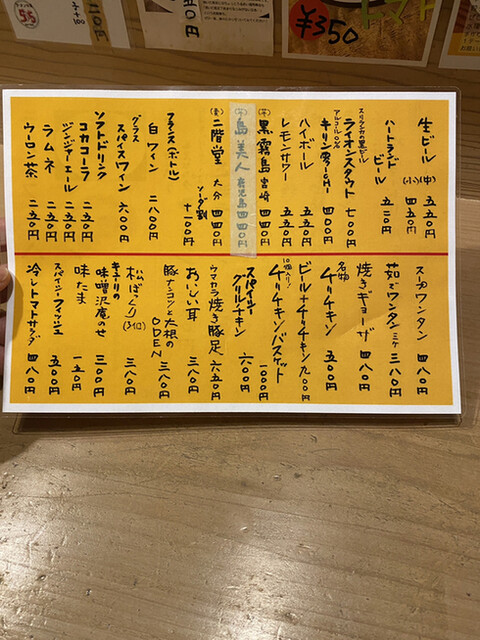 ¥350
生ビール (中) 五五〇円
(小) 四五〇円
ハートランドビール 五五〇円
スリランカの黒ビール
ライオンスタウト 七〇〇円
アルコール0.00%
キリン零ICHI 四五〇円
ハイボール 五五〇円
レモンサワー 五五〇円
(芋) 黒霧島 宮崎 四四〇円
(芋) 島美人 鹿児島 四四〇円
(麦) 二階堂 大分 四四〇円
ソーダ割 +一〇〇円
フランス(ボトル)
白ワイン 二八〇〇円
グラス
スパイスワイン 六〇〇円
ソフトドリンク
コカコーラ 二五〇円
ジンジャーエール 二五〇円
ラムネ 二五〇円
ウーロン茶 二五〇円
スープワンタン 四八〇円
茹でワンタン 三八〇円
焼きギョーザ 四八〇円
名物
チリチキン 五〇〇円
ビール+チリチキン 九〇〇円
10個入り!
チリチキンバスケット 一〇〇〇円
スパイシーグリルチキン 六〇〇円
ウマカラ焼き豚足 六五〇円
おいしい耳 三八〇円
豚ナンコツと大根のODEN 三八〇円
松ぼっくり(3個) 三八〇円
キュウリの味噌沢庵のせ 三〇〇円
味たま 一五〇円
スパイシーフィッシュ 五〇〇円
冷しトマトサラダ 四八〇円